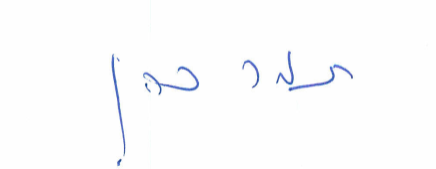 תמר כהן